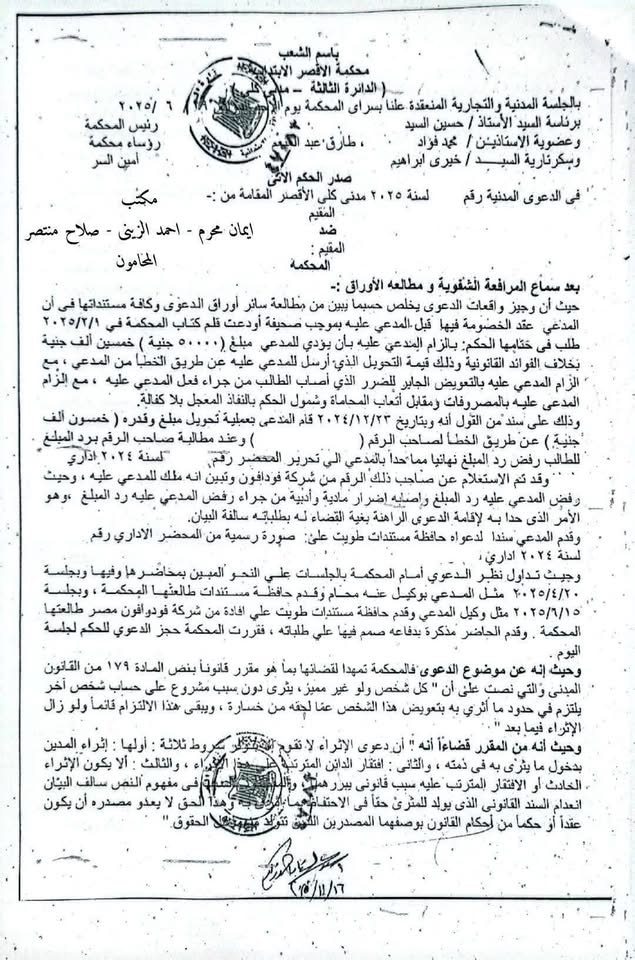 باسم الشعب
محكمة الأقصر الابتدائية
( الدائرة الثالثة – مدنى كلى
بالجلسة المدنية والتجارية المنعقدة علنا بسراى المحكمة يوم ٦ /٢٠٢٥
برئاسة السيد الأستاذ / حسين السيد رئيس المحكمة
وعضوية الاستاذين / محمد فؤاد ، طارق عبد رؤساء محكمة
وسكرتارية السيد / خيرى ابراهيم أمين السر
صدر الحكم الاتى
فى الدعوى المدنية رقم لسنة ٢٠٢٥ مدنى كلى الأقصر المقامة من :-
مكتب
المقيم
ايمان محرم - احمد الزينى - صلاح منتصر
ضد
المقيم :
المحامون
المحكمة
بعد سماع المرافعة الشفوية و مطالعه الأوراق :-
حيث أن وجيز واقعات الدعوى يخلص حسبما يبين من مطالعة سائر أوراق الدعوى وكافة مستنداتها فى أن
المدعي عقد الخصومة فيها قبل المدعي عليه بموجب صحيفة أودعت قلم كتاب المحكمة في ٢٠٢٥/٢/١
طلب فى ختامها الحكم: بالزام المدعي عليه بأن يؤدي للمدعي مبلغ (٥٠٠٠٠ جنية ) خمسين ألف جنية
بخلاف الفوائد القانونية وذلك قيمة التحويل الذي أرسل للمدعي عليه عن طريق الخطأ من المدعي ، مع
الزام المدعى عليه بالتعويض الجابر للضرر الذى أصاب الطالب من جراء فعل المدعى عليه ، مع إلزام
المدعى عليه بالمصروفات ومقابل أتعاب المحاماة وشمول الحكم بالنفاذ المعجل بلا كفالة.
وذلك على سند من القول أنه وبتاريخ ٢٠٢٤/١٢/٢٣ قام المدعى بعملية تحويل مبلغ وقدره ( خمسون ألف
جنية ) عن طريق الخطأ لصاحب الرقم ( ) وعند مطالبة صاحب الرقم برد المبلغ
للطالب رفض رد المبلغ نهائيا مما حدا بالمدعي الي تحرير المحضر رقم لسنة ٢٠٢٤ اداري
وقد تم الاستعلام عن صاحب ذلك الرقم من شركة فودافون وتبين انه ملك للمدعي عليه ، وحيث
رفض المدعي عليه رد المبلغ وإصابه إضرار مادية وأدبية من جراء رفض المدعي عليه رد المبلغ ،وهو
الأمر الذى حدا به لإقامة الدعوى الراهنة بغية القضاء له بطلباته سالفة البيان.
وقدم المدعي سندا لدعواه حافظة مستندات طويت على: صورة رسمية من المحضر الاداري رقم
لسنة ٢٠٢٤ اداري،
وحيث تداول نظر الدعوي أمام المحكمة بالجلسات علي النحو المبين بمحاضرها وفيها وبجلسة
٢٠٢٥/٤/٢٠ مثل المدعي بوكيل عنه محام وقدم حافظة مستندات طالعتها المحكمة ، وبجلسة
٢٠٢٥/٦/١٥ مثل وكيل المدعي وقدم حافظة مستندات طويت علي افادة من شركة فودوافون مصر طالعتها
المحكمة . وقدم الحاضر مذكرة بدفاعه صمم فيها علي طلباته ، فقررت المحكمة حجز الدعوي للحكم لجلسة
اليوم .
وحيث إنه عن موضوع الدعوى فالمحكمة تمهدا لقضائها بما هو مقرر قانوناً بنص المادة ١٧٩ من القانون
المدنى والتي نصت على أن " كل شخص ولو غير مميز، يثرى دون سبب مشروع على حساب شخص آخر
يلتزم في حدود ما أثري به بتعويض هذا الشخص عمّا لحقه من خسارة ، ويبقى هذا الالتزام قائماً ولو زال
الإثراء فيما بعد "
وحيث أنه من المقرر قضاءاً أنه " أن دعوى الإثراء لا تقوم شروط ثلاثة : أولها: إثراء المدين
بدخول ما يثرى به فى ذمته ، والثانى : افتقار الدائن المترتب على هذا الإثراء ، والثالث : ألا يكون الإثراء
الحادث أو الافتقار المترتب عليه سبب قانونى يبرر فى مفهوم النص سالف البيان
انعدام السند القانونى الذى يولد للمثرى حقاً فى الاحتفاظ وهذا الحق لا يعدو مصدره أن يكون
عقداً أو حكماً من أحكام القانون بوصفهما المصدرين الحقوق . "
٢٠٢٥/١١/١٦